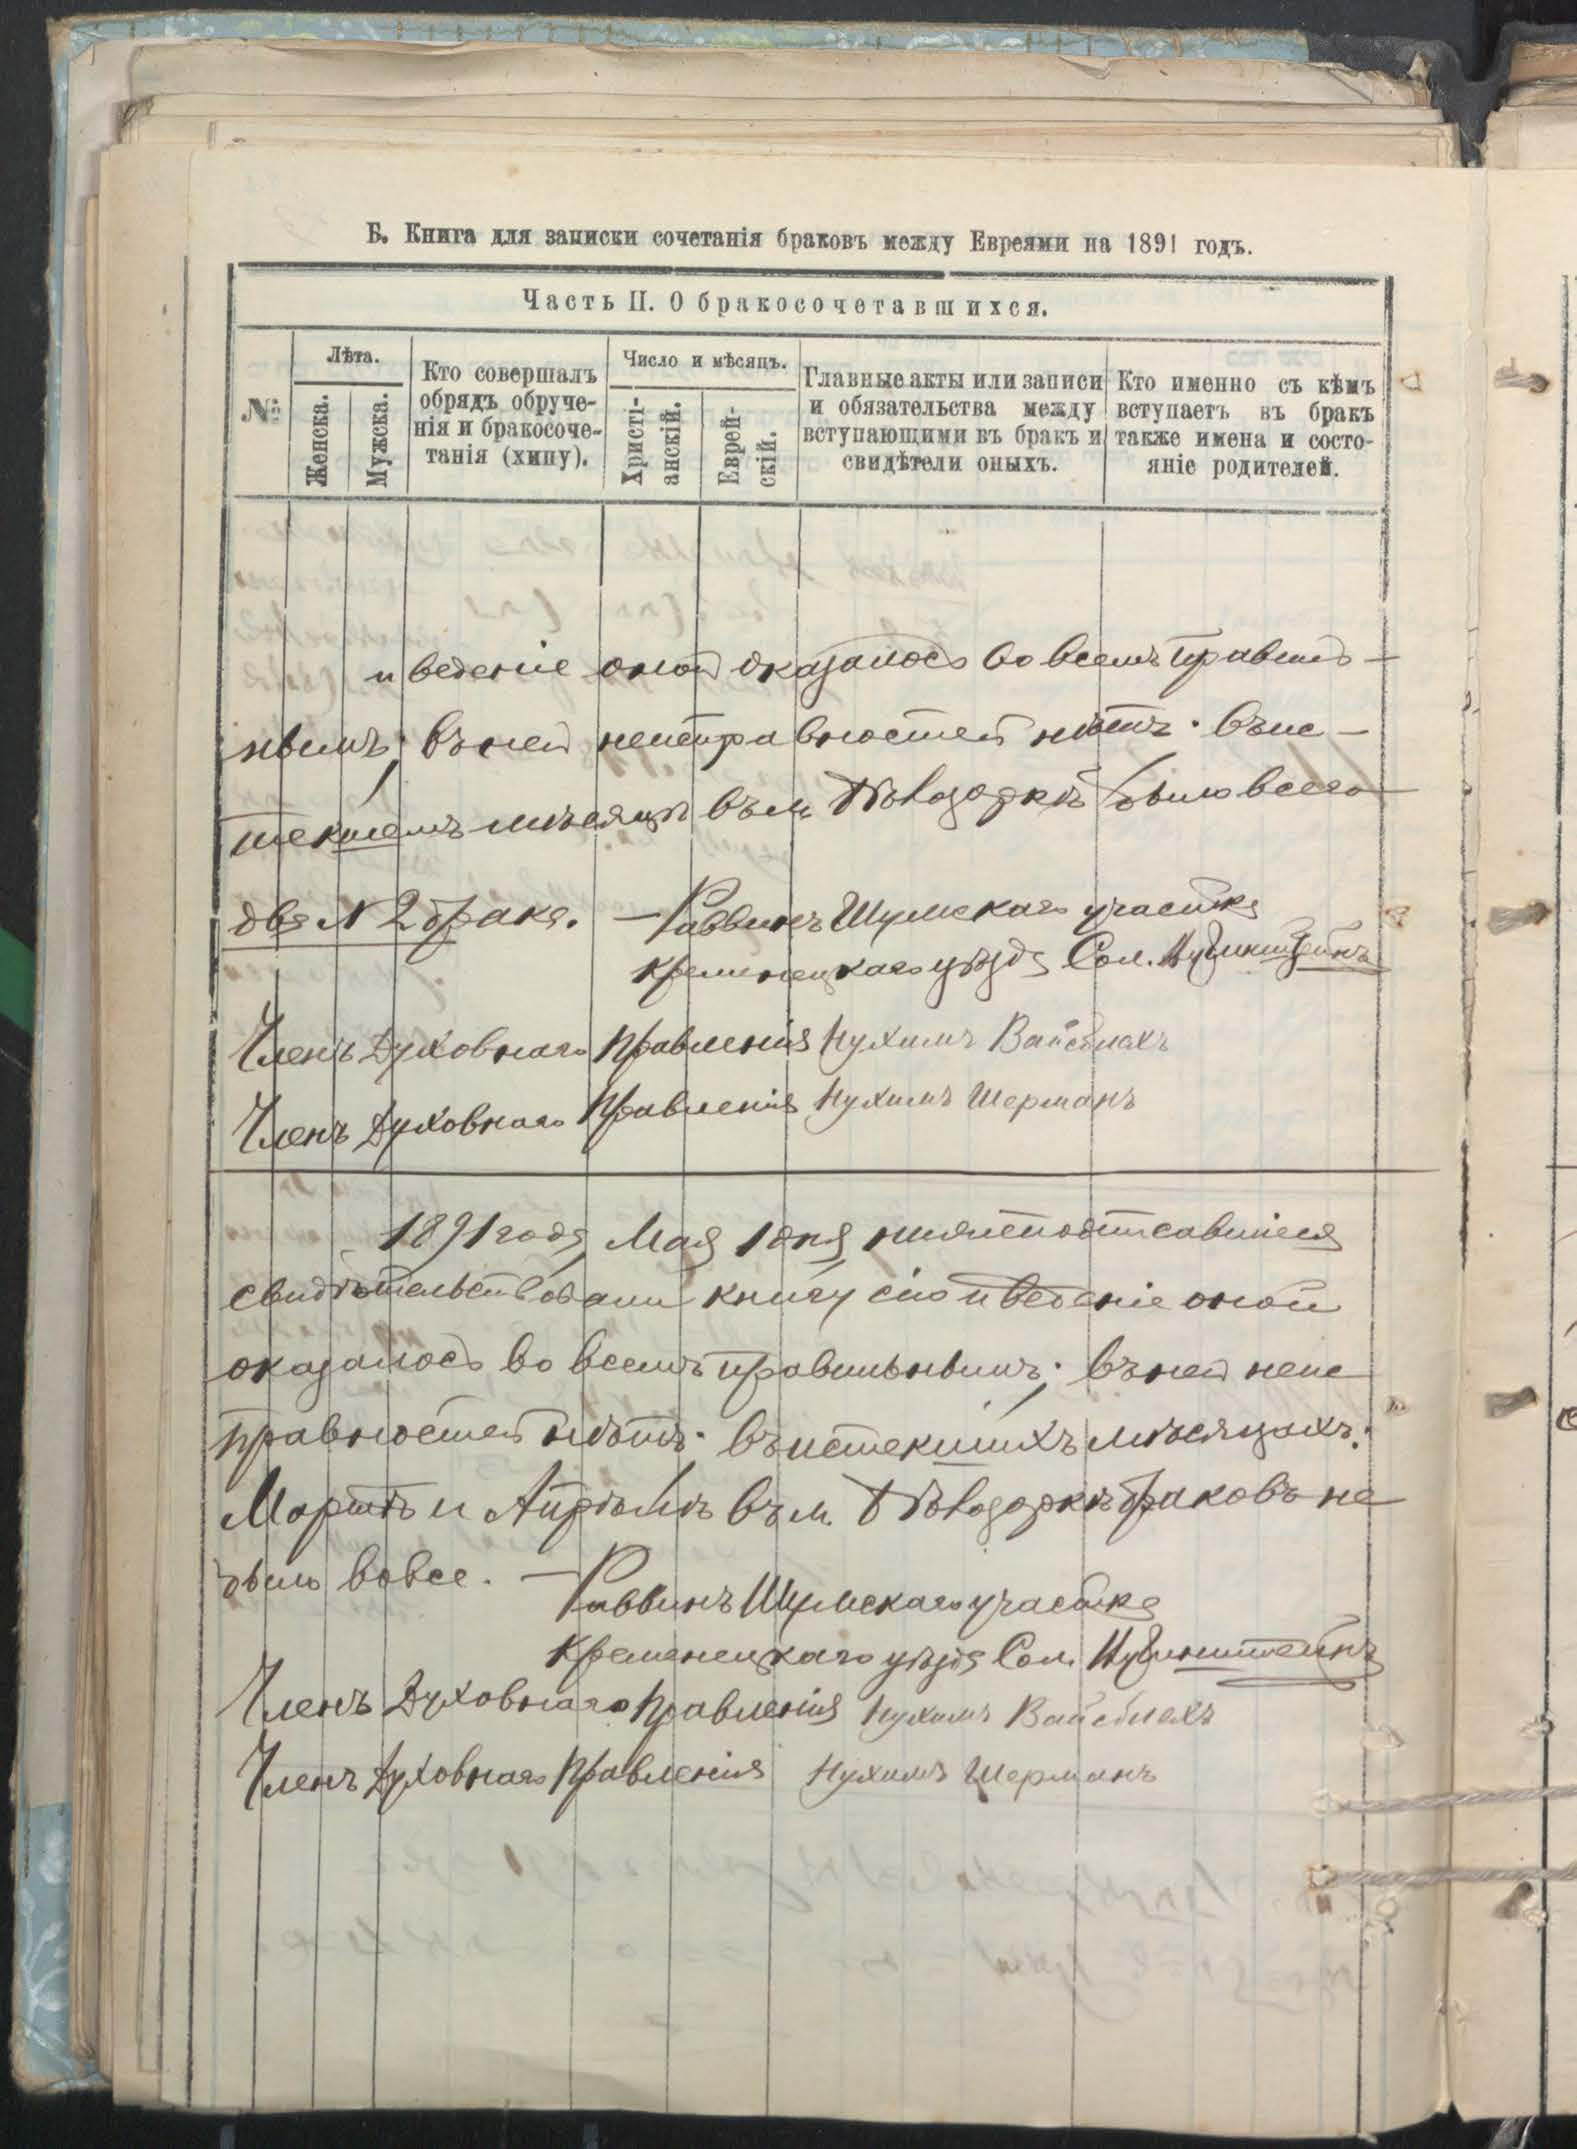 Б. Книга для записки сочетанія браковъ между Евреями на 1891 годъ.
Часть II. О бракосочетавшихся.
№
Лѣта.
Женска.
Мужска.
Кто совершалъ
обрядъ обруче-
нія и бракосоче-
танія (хипу).
Число и мѣсяцъ.
Христі-
анскій.
Еврей-
скій.
Главные акты или записи
и обязательства между
вступающими въ бракъ и
свидѣтели оныхъ.
Кто именно съ кѣмъ
вступаетъ въ бракъ
также имена и состо-
яніе родителей.
и веденіе оной оказалось во всемъ правиль-
нымъ; въ ней неисправностей нѣтъ. въ ис-
текшемъ мѣсяцѣ въ м. Бѣлозоркѣ было всего
два № 2 брака. — Раввинъ Шумскаго участка
Кременецкаго уѣзда Сол.
Членъ Духовнаго Правленія Нухимъ Вайсблахъ
Членъ Духовнаго Правленія Нухимъ Шерманъ
1891 года, Мая 1 дня, нижеподписавшіеся
свидѣтельствовали книгу сію и веденіе оной
оказалось во всемъ правильнымъ; въ ней неис
правностей нѣтъ. въ истекшихъ мѣсяцахъ:
Мартѣ и Апрѣлѣ въ м. Бѣлозоркѣ браковъ не
было вовсе. — Раввинъ Шумскаго участка
Кременецкаго уѣзда Сол.
Членъ Духовнаго Правленія Нухимъ Вайсблахъ
Членъ Духовнаго Правленія Нухимъ Шерманъ